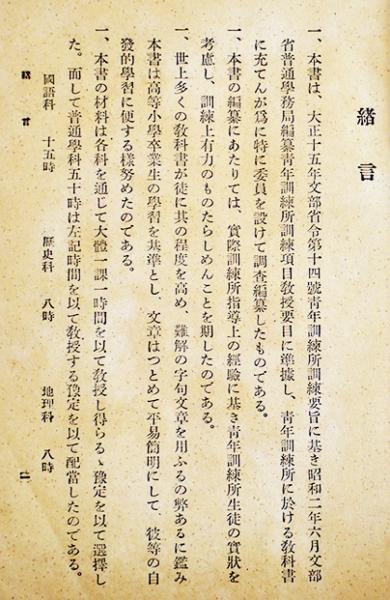 緒言
一、本書は、大正十五年文部省令第十四號青年訓練所訓練要旨に基き昭和二年六月文部
省普通學務局編纂青年訓練所訓練項目教授要目に準據し、青年訓練所に於ける敎科書
に充てんが爲に特に委員を設けて調査編纂したものである。
一、本書の編纂にあたりては、實際訓練所指導上の經驗に基き青年訓練所生徒の實狀を
考慮し、訓練上有力のものたらしめんことを期したのである。
一、世上多くの敎科書が徒に其の程度を高め、難解の字句文章を用ふるの弊あるに鑑み
本書は高等小學卒業生の學習を基準とし、文章はつとめて平易簡明にして、彼等の自
發的學習に便する樣努めたのである。
一、本書の材料は各科を通じて大體一課一時間を以て敎授し得らるゝ豫定を以て選擇し
た。而して普通學科五十時は左記時間を以て敎授する豫定を以て配當したのである。
國語科　十五時　　歷史科　八時　　地理科　八時
緒言　一